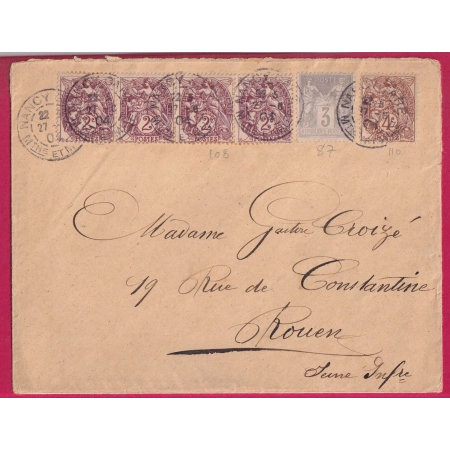 NANCY 2 2 2 2 3 4
108 87 110
Madame Gaston Croizé
19 Rue de Constantine
Rouen
Seine Infre